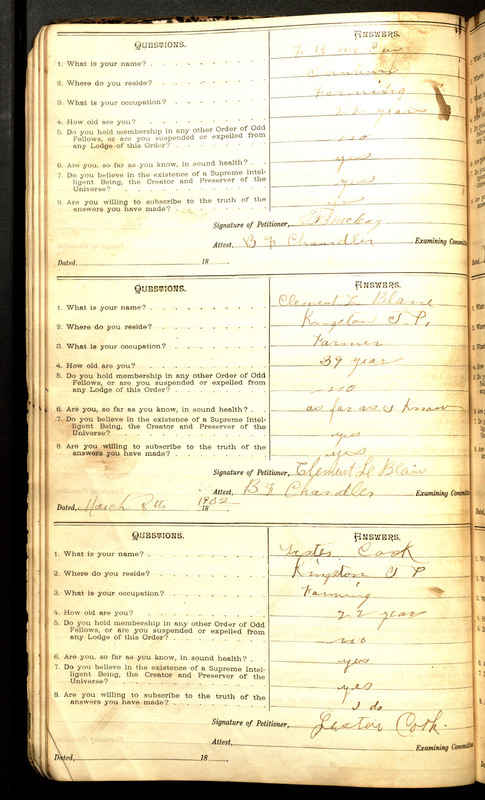 QUESTIONS. ANSWERS.
1. What is your name?
2. Where do you reside?
3. What is your occupation? Farming
4. How old are you? 22 years
5. Do you hold membership in any other Order of Odd
Fellows, or are you suspended or expelled from
any Lodge of this Order? no
6. Are you, so far as you know, in sound health? yes
7. Do you believe in the existence of a Supreme Intel-
ligent Being, the Creator and Preserver of the
Universe? yes
8. Are you willing to subscribe to the truth of the
answers you have made? yes
Signature of Petitioner,
Attest, B F Chandler Examining Committ
Dated, 18
QUESTIONS. ANSWERS.
1. What is your name? Clement L Blane
2. Where do you reside? Kingston I. P,
3. What is your occupation? Farmer
4. How old are you? 39 year
5. Do you hold membership in any other Order of Odd
Fellows, or are you suspended or expelled from
any Lodge of this Order? no
6. Are you, so far as you know, in sound health? as far as I know
7. Do you believe in the existence of a Supreme Intel-
ligent Being, the Creator and Preserver of the
Universe? yes
8. Are you willing to subscribe to the truth of the
answers you have made? yes
Signature of Petitioner, Clement L Blain
Attest, B F Chandler Examining Committ
Dated, March 8th 18 1902
QUESTIONS. ANSWERS.
1. What is your name? Lester Cook
2. Where do you reside? Kingston I P
3. What is your occupation? Farming
4. How old are you? 22 year
5. Do you hold membership in any other Order of Odd
Fellows, or are you suspended or expelled from
any Lodge of this Order? no
6. Are you, so far as you know, in sound health? yes
7. Do you believe in the existence of a Supreme Intel-
ligent Being, the Creator and Preserver of the
Universe? yes
8. Are you willing to subscribe to the truth of the
answers you have made? I do
Signature of Petitioner, Lester Cook.
Attest, Examining Committ
Dated, 18